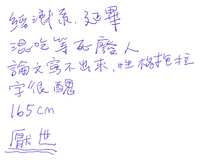 經濟系、延畢
混吃等死廢人
論文寫不出來,性格抱拉
字很醜
165cm
厭世